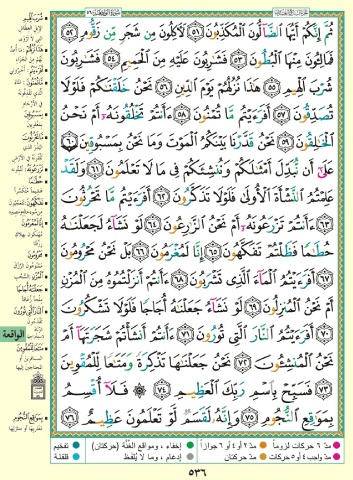 ثُمَّ إِنَّكُمْ أَيُّهَا الضَّالُّونَ الْمُكَذِّبُونَ ٥١ لَآكِلُونَ مِن شَجَرٍ مِّن زَقُّومٍ ٥٢
فَمَالِئُونَ مِنْهَا الْبُطُونَ ٥٣ فَشَارِبُونَ عَلَيْهِ مِنَ الْحَمِيمِ ٥٤ فَشَارِبُونَ
شُرْبَ الْهِيمِ ٥٥ هَذَا نُزُلُهُمْ يَوْمَ الدِّينِ ٥٦ نَحْنُ خَلَقْنَاكُمْ فَلَوْلَا
تُصَدِّقُونَ ٥٧ أَفَرَءَيْتُم مَّا تُمْنُونَ ٥٨ ءَأَنتُمْ تَخْلُقُونَهُ أَمْ نَحْنُ
الْخَالِقُونَ ٥٩ نَحْنُ قَدَّرْنَا بَيْنَكُمُ الْمَوْتَ وَمَا نَحْنُ بِمَسْبُوقِينَ ٦٠
عَلَى أَن نُّبَدِّلَ أَمْثَالَكُمْ وَنُنشِئَكُمْ فِي مَا لَا تَعْلَمُونَ ٦١ وَلَقَدْ
عَلِمْتُمُ النَّشْأَةَ الْأُولَى فَلَوْلَا تَذَكَّرُونَ ٦٢ أَفَرَءَيْتُم مَّا تَحْرُثُونَ
٦٣ ءَأَنتُمْ تَزْرَعُونَهُ أَمْ نَحْنُ الزَّارِعُونَ ٦٤ لَوْ نَشَاءُ لَجَعَلْنَاهُ
حُطَامًا فَظَلْتُمْ تَفَكَّهُونَ ٦٥ إِنَّا لَمُغْرَمُونَ ٦٦ بَلْ نَحْنُ مَحْرُومُونَ
٦٧ أَفَرَءَيْتُمُ الْمَاءَ الَّذِي تَشْرَبُونَ ٦٨ ءَأَنتُمْ أَنزَلْتُمُوهُ مِنَ الْمُزْنِ
أَمْ نَحْنُ الْمُنزِلُونَ ٦٩ لَوْ نَشَاءُ جَعَلْنَاهُ أُجَاجًا فَلَوْلَا تَشْكُرُونَ
٧٠ أَفَرَءَيْتُمُ النَّارَ الَّتِي تُورُونَ ٧١ ءَأَنتُمْ أَنشَأْتُمْ شَجَرَتَهَا أَمْ
نَحْنُ الْمُنشِئُونَ ٧٢ نَحْنُ جَعَلْنَاهَا تَذْكِرَةً وَمَتَاعًا لِّلْمُقْوِينَ
٧٣ فَسَبِّحْ بِاسْمِ رَبِّكَ الْعَظِيمِ ٧٤ فَلَا أُقْسِمُ
بِمَوَاقِعِ النُّجُومِ ٧٥ وَإِنَّهُ لَقَسَمٌ لَّوْ تَعْلَمُونَ عَظِيمٌ ٧٦
الواقعة
مدّ ٦ حركات لزوماً
مدّ ٢ أو ٤ أو ٦ جوازاً
إخفاء، ومواقع الغُنَّة (حركتان)
تفخيم
مدّ واجب ٤ أو ٥ حركات
مدّ حركتان
إدغام، وما لا يُلفظ
قلقلة
٥٣٦